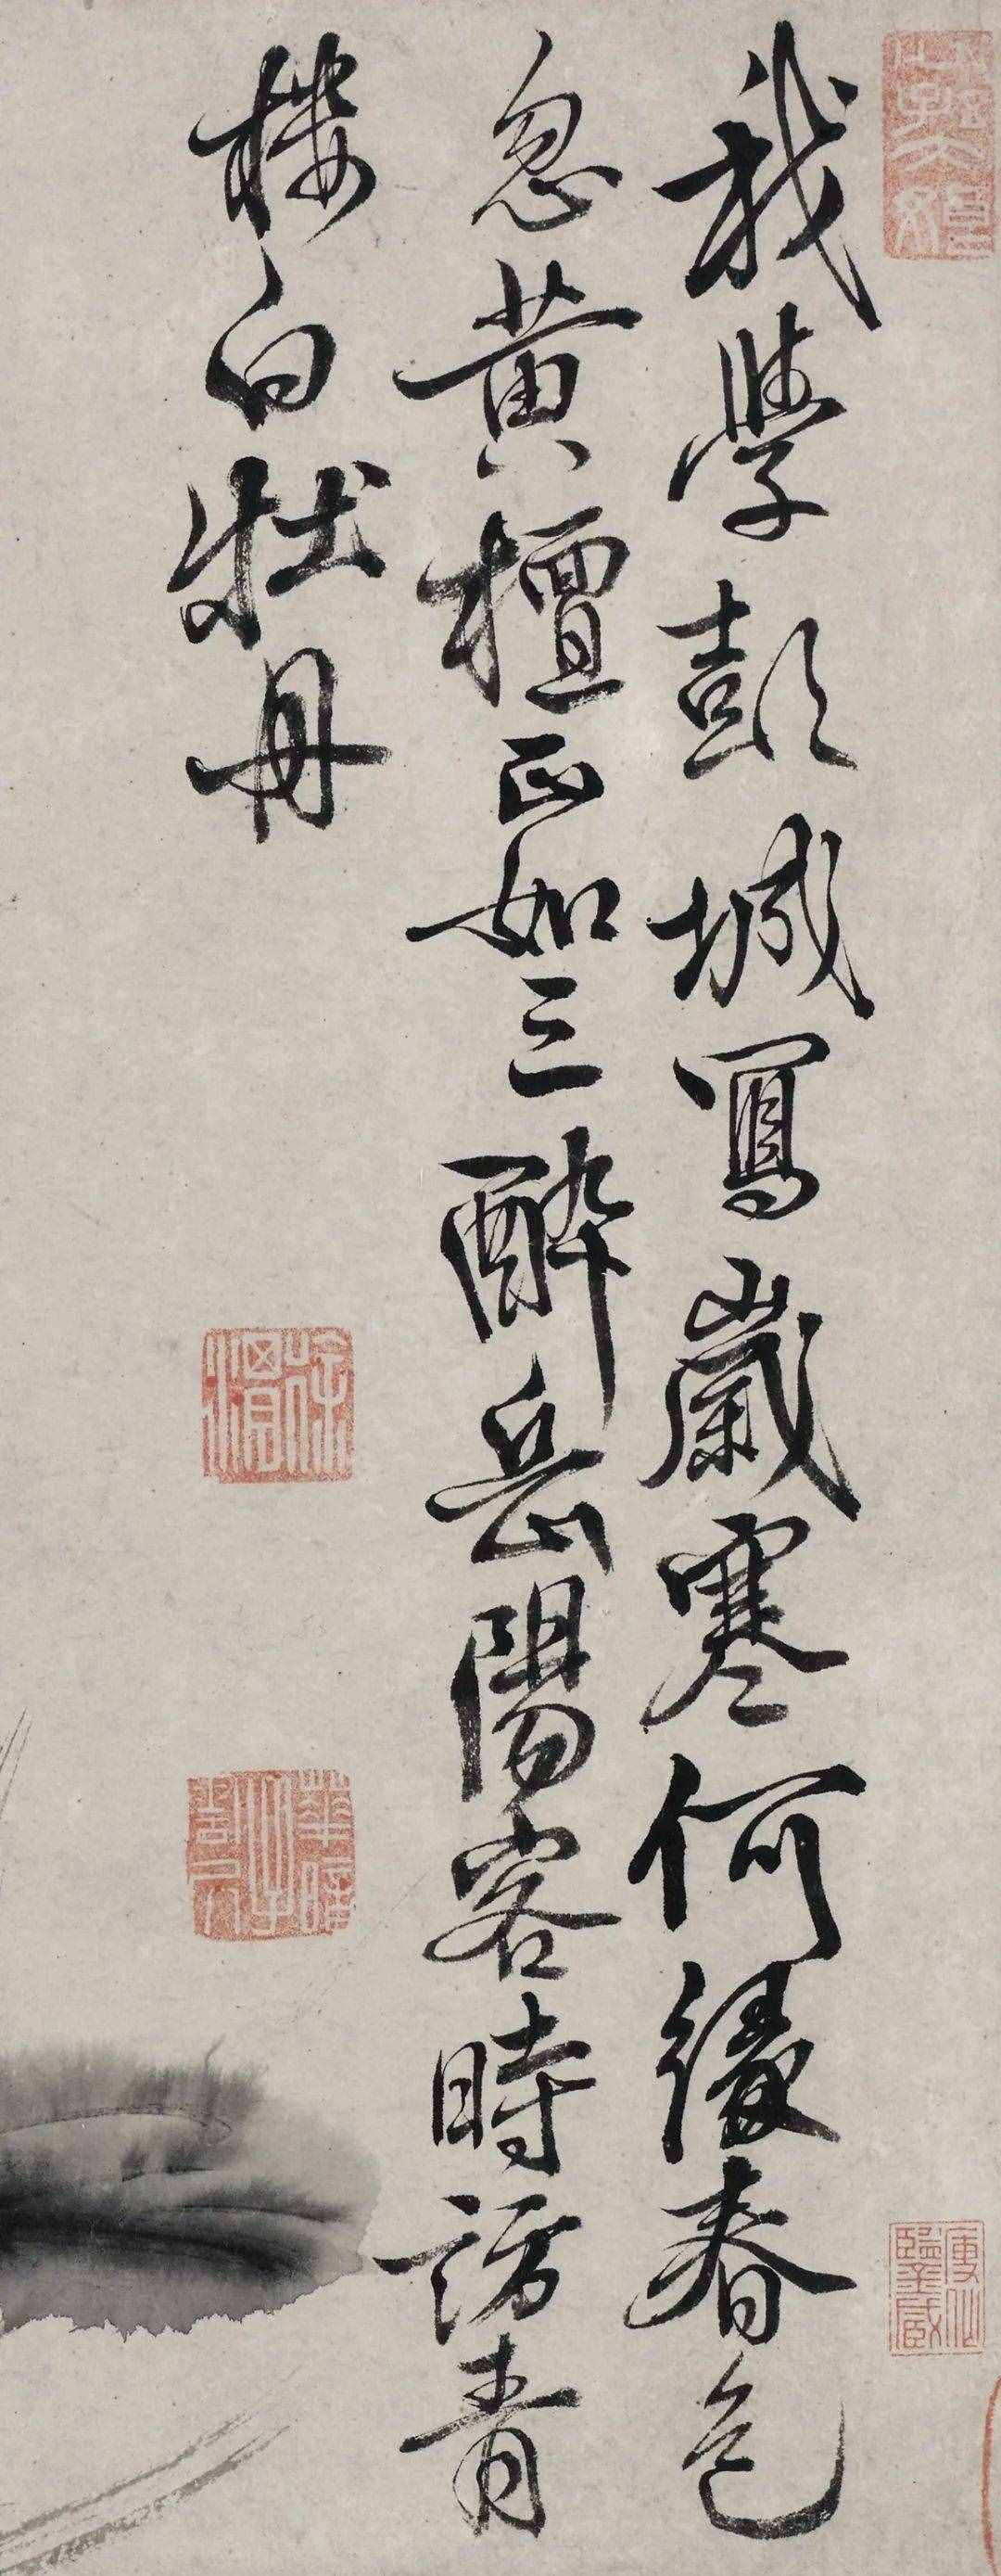 我學彭城寫歲寒何緣春色
忽黄檀正如三醉岳陽客時訪青
樓白牡丹
徐渭